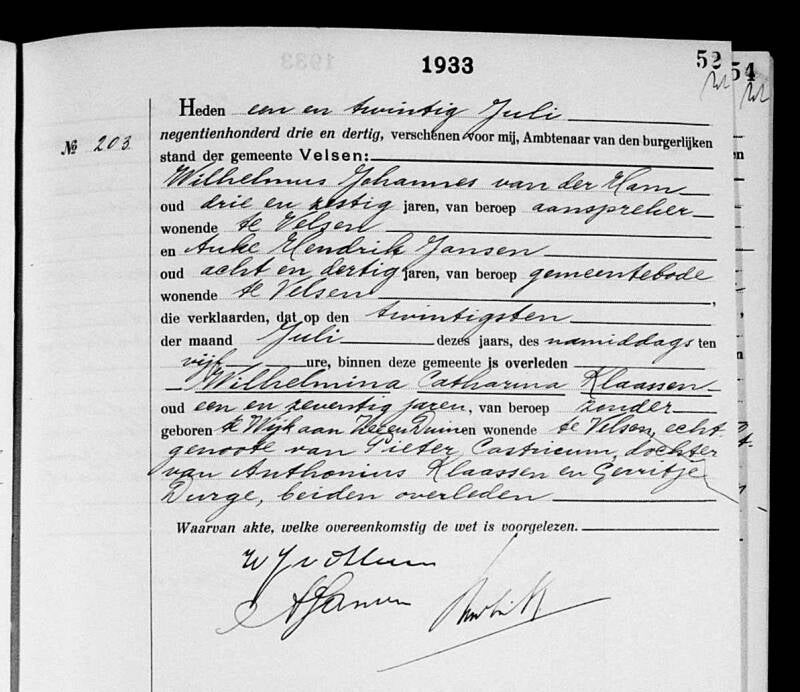 1933
52
54
Heden een en twintig Juli
Nº 203
negentienhonderd drie en dertig, verschenen voor mij, Ambtenaar van den burgerlijken
stand der gemeente Velsen:
Wilhelmus Johannes van der Ham
oud drie en zestig jaren, van beroep aanspreker
wonende te Velsen
en Auke Hendrik Jansen
oud acht en dertig jaren, van beroep gemeentebode
wonende te Velsen,
die verklaarden, dat op den twintigsten
der maand Juli dezes jaars, des namiddags ten
vijf ure, binnen deze gemeente is overleden
Wilhelmina Catharina Klaassen
oud een en zeventig jaren, van beroep zonder
geboren te Wijk aan Zee en Duin en wonende te Velsen, echt-
genoote van Pieter Castricum, dochter
van Anthonius Klaassen en Gerritje
Durge, beiden overleden
Waarvan akte, welke overeenkomstig de wet is voorgelezen.
W J v d Ham
AHJansen